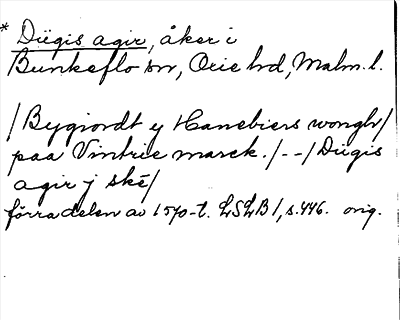 * Diigis agir, åker i
Bunkeflo sn, Oxie hd, Malm. l.
/Bygiordt y Hanebiers wongh/
paa Vintrie marck./--/Diigis
agir j skē/
förra delen av 1570-t. LSLB 1, s. 446. orig.